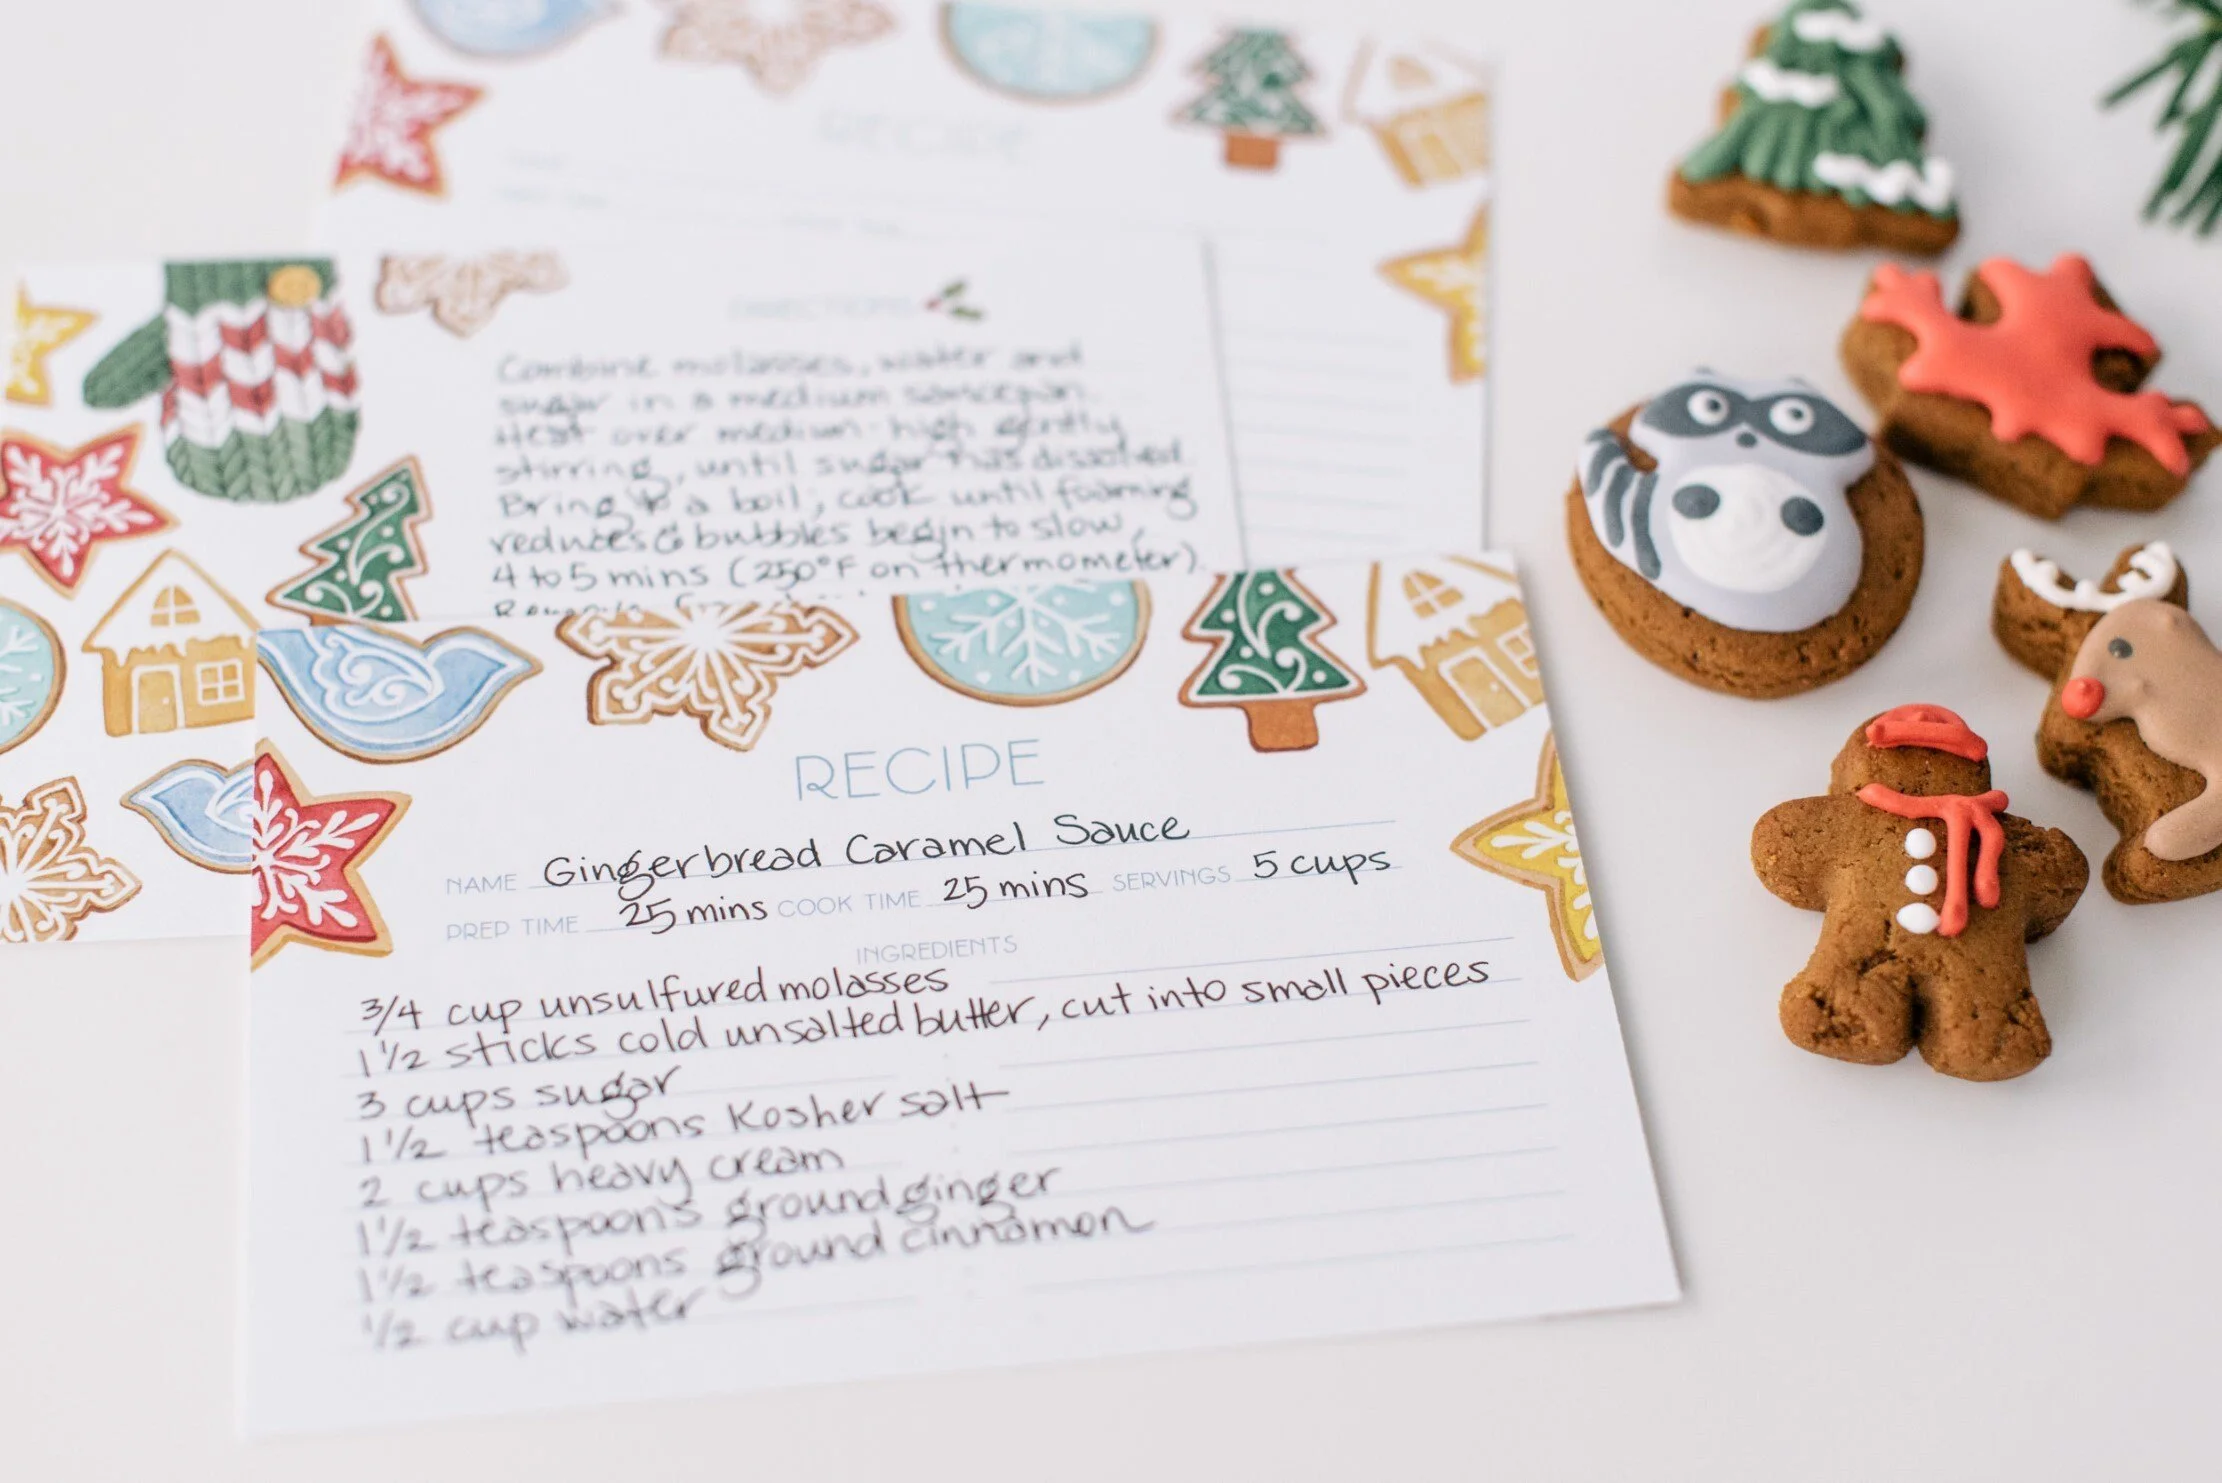 RECIPE
DIRECTIONS
Combine molasses, water and
sugar in a medium saucepan.
Heat over medium-high gently
stirring, until sugar has dissolved.
Bring to a boil; cook until foaming
reduces & bubbles begin to slow,
4 to 5 mins (250°F on thermometer).
RECIPE
NAME Gingerbread Caramel Sauce
PREP TIME 25 mins COOK TIME 25 mins SERVINGS 5 cups
INGREDIENTS
3/4 cup unsulfured molasses
1 1/2 sticks cold unsalted butter, cut into small pieces
3 cups sugar
1 1/2 teaspoons Kosher salt
2 cups heavy cream
1 1/2 teaspoons ground ginger
1 1/2 teaspoons ground cinnamon
1/2 cup water